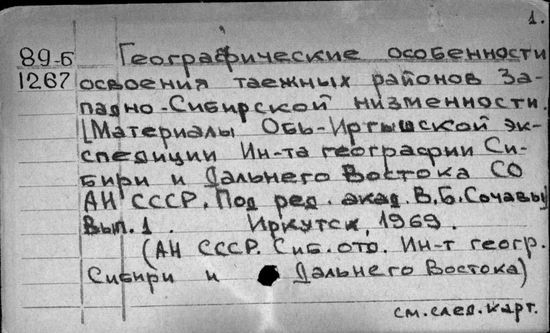 1.
89-Б Географические особенности
1267 освоения таежных районов За-
падно-Сибирской низменности.
[Материалы Обь-Иртышской эк-
спедиции Ин-та географии Си-
бири и Дальнего Востока СО
АН СССР. Под ред. акад. В.Б. Сочавы]
Вып. 1. Иркутск, 1969.
(АН СССР. Сиб. отд. Ин-т геогр.
Сибири и Дальнего Востока)
см. след. карт.